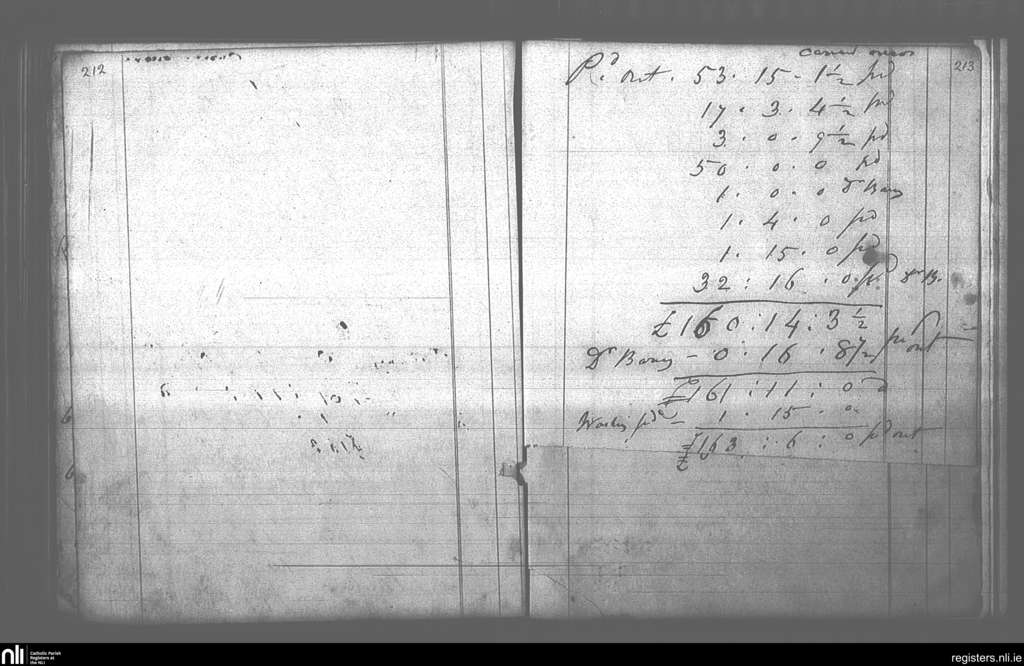 212
213
Pd out. 53. 15 - 1 1/2 pd
17. 3. 4 1/2 pd
3. 0. 9 1/2 pd
50. 0. 0 pd
1. 0. 0 Dr Barry
1. 4. 0 pd
1. 15. 0 pd
32: 16. 0. pd. Dr B.
£160: 14: 3 1/2
Dr Barry - 0. 16. 8 1/2 pd out
£161: 11: 0
pd - 1. 15. 0
£163: 6: 0 pd out
nli
Catholic Parish
Registers at
the NLI
registers.nli.ie